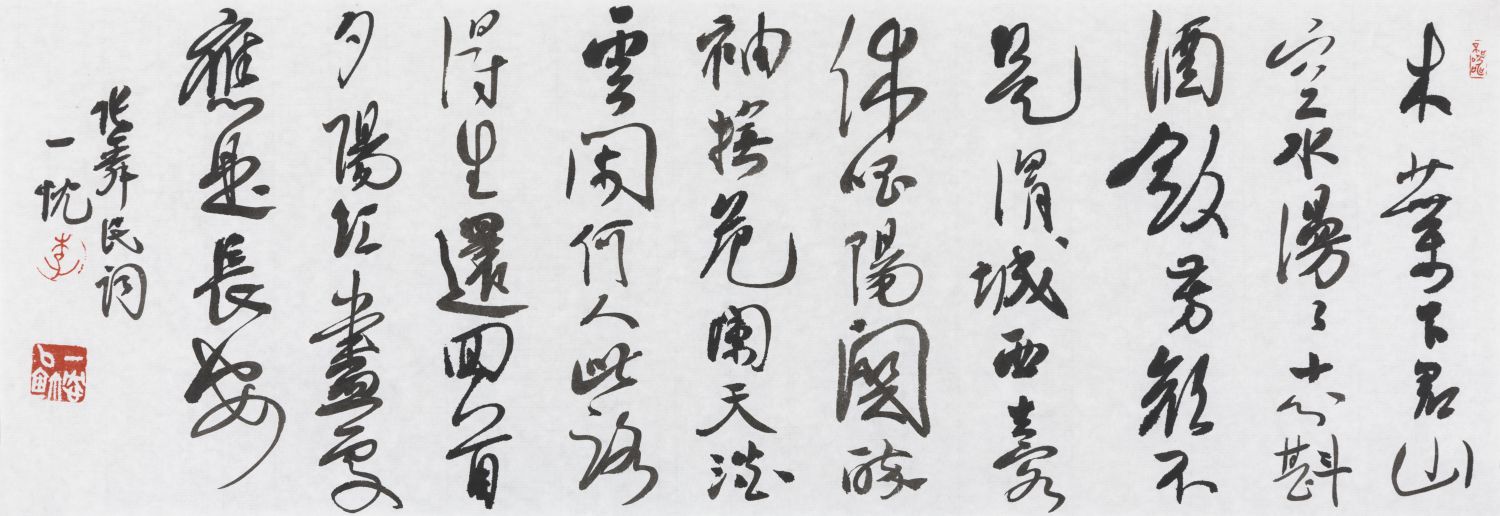 木葉下君山
空水漫々十分斟
酒斂芳顏不
是渭城西去客
休唱陽關醉
袖撫危闌天淡
雲閑何人此路
得生還回首
夕陽紅盡處
應是長安
張舜民詞
一忱
李